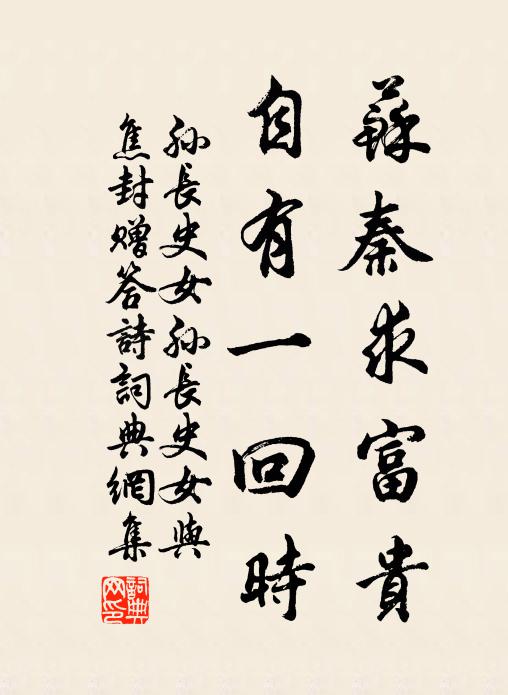 蘇秦求富貴
自有一回時
孫長史女孫長史女與
焦封贈答詩詞典網集
詞典網印